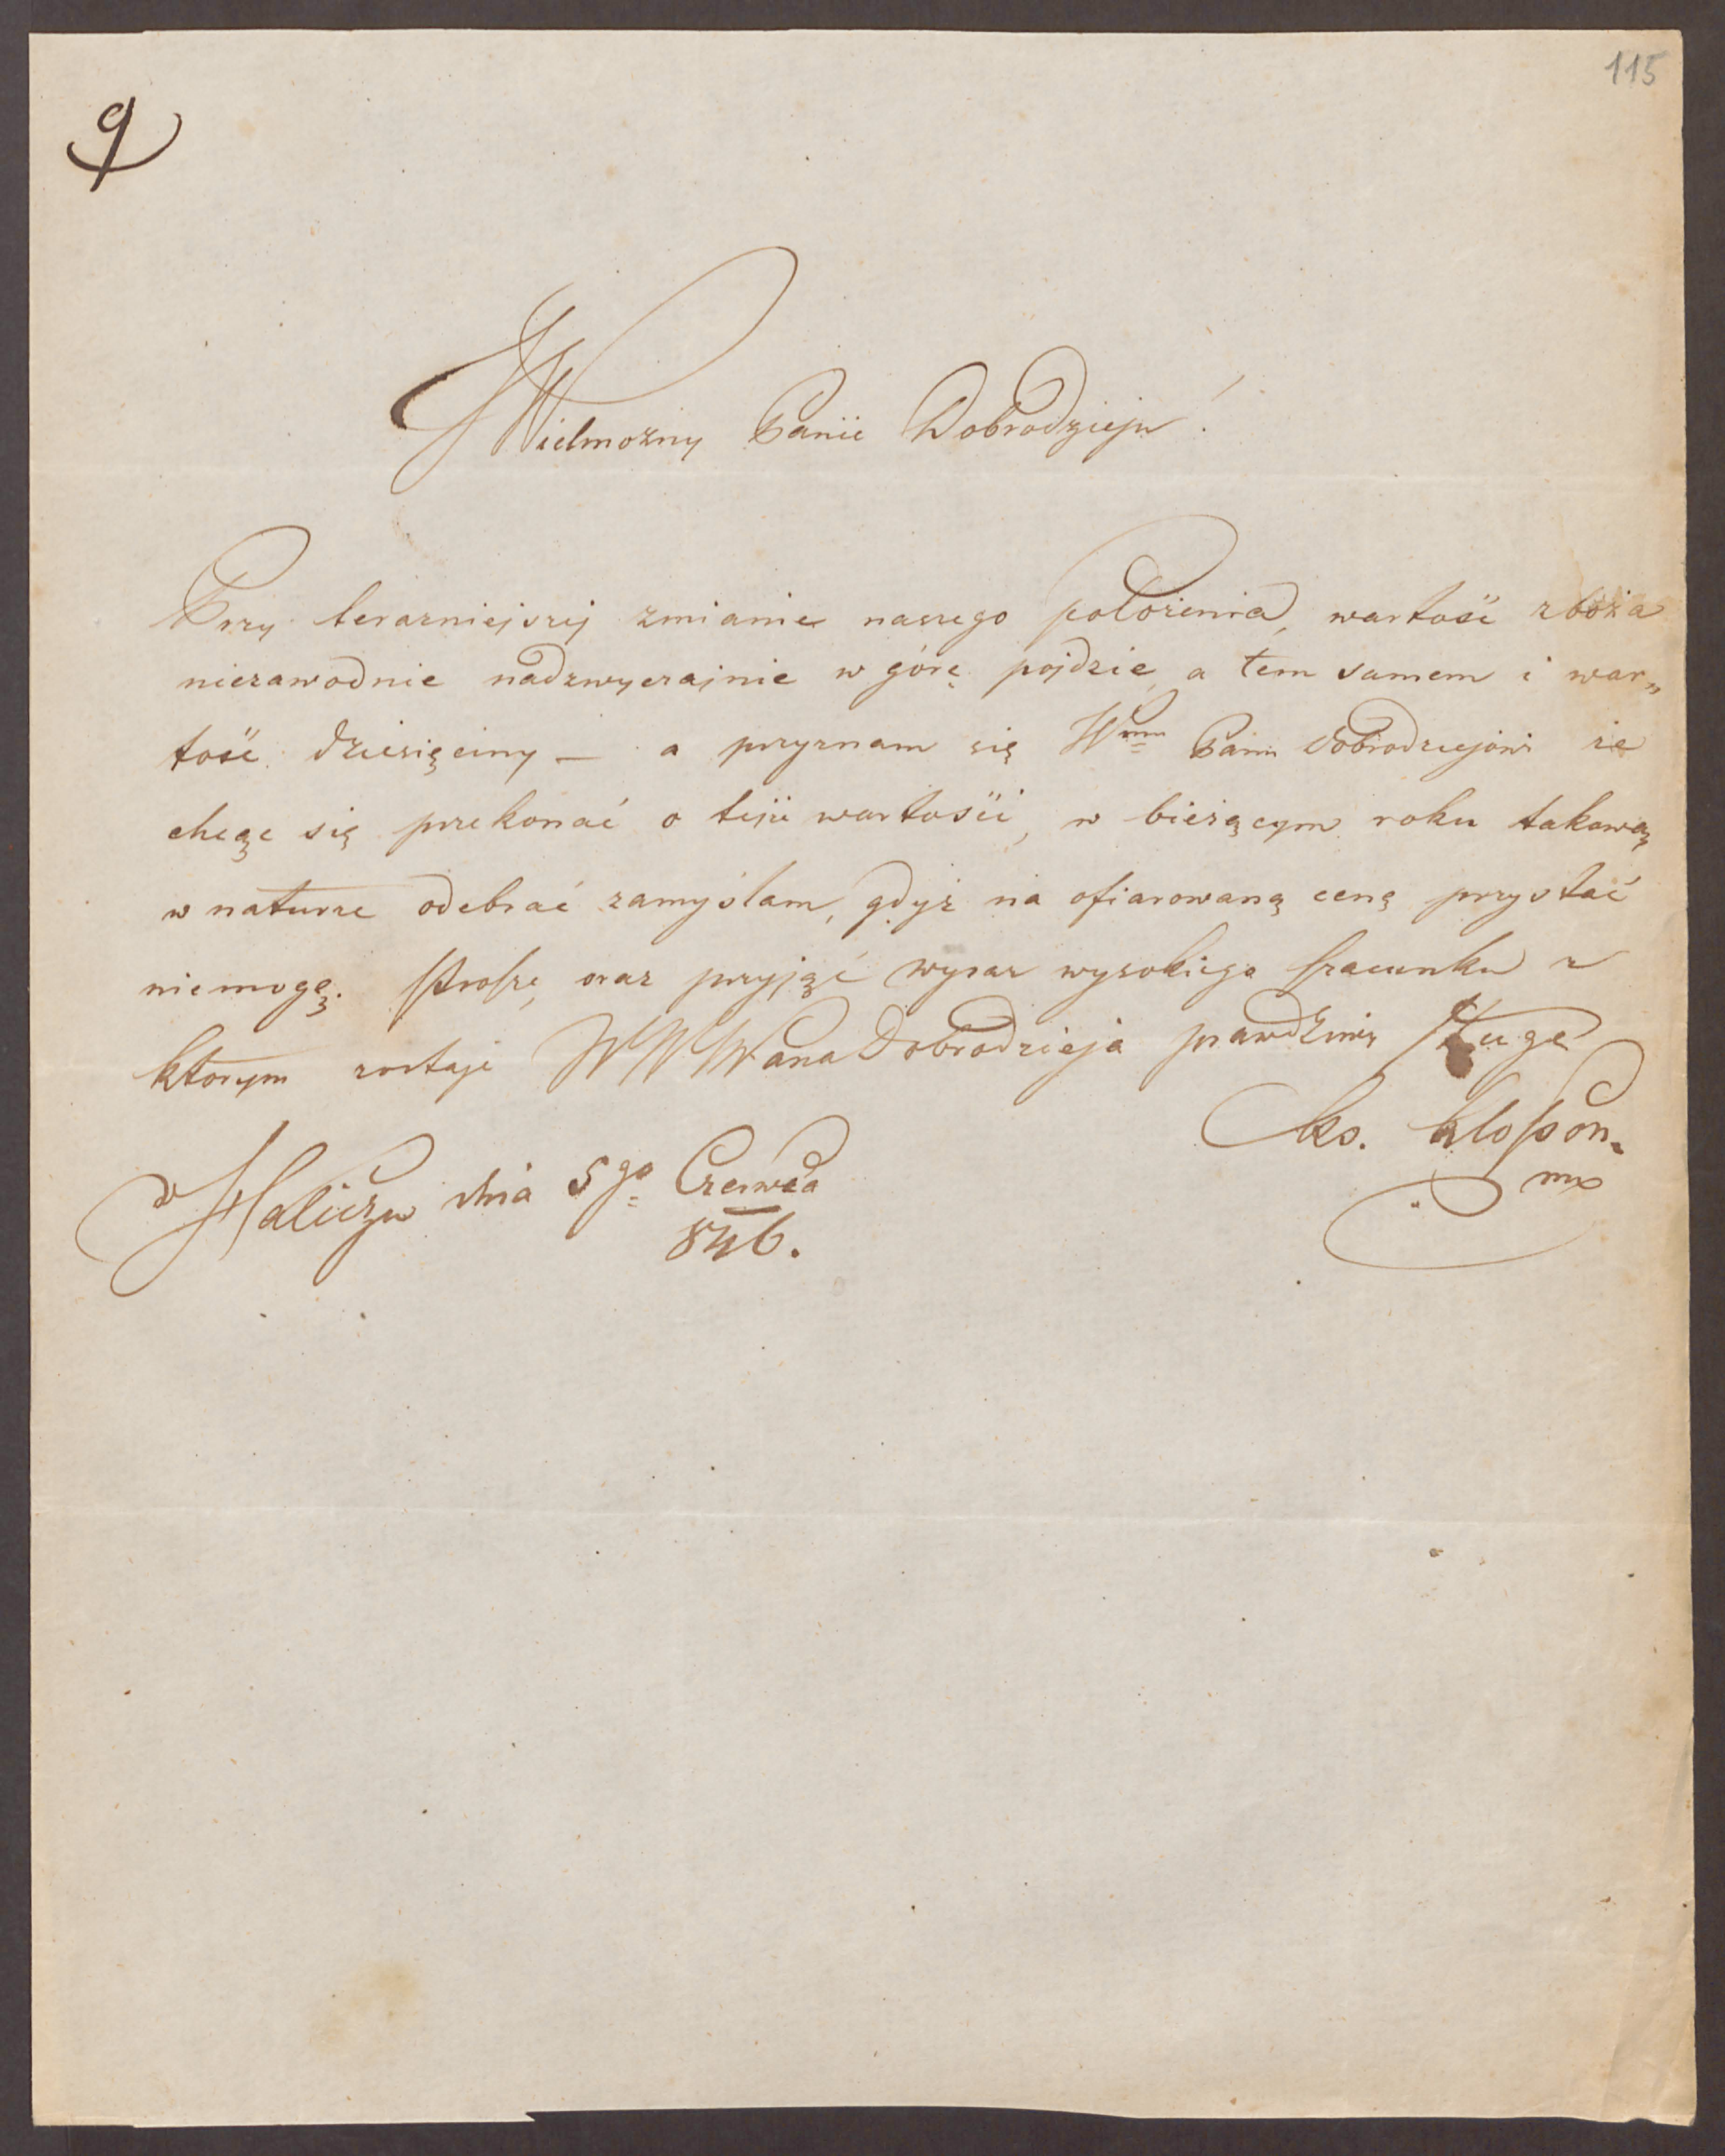 115
9
Wielmożny Panie Dobrodzieju!
Przy terazniejszej zmianie naszego położenia, wartość zboża
niezawodnie nadzwyczajnie w górę pojdzie, a tem samem i war„
tość dziesięciny — a przyznam się Wmu Panu Dobrodziejowi że
chcąc się przekonać o tejże wartości, w bieżącym roku takową
w naturze odebrać zamyślam, gdyż na ofiarowaną cenę przystać
niemogę. Proszę, oraz przyjąć wyraz wysokiego szacunku z
ktorym zostaję WW Pana Dobrodzieja prawdziwy sługą
Xs.
w Haliczu dnia 5go Czerwca
846.
mp